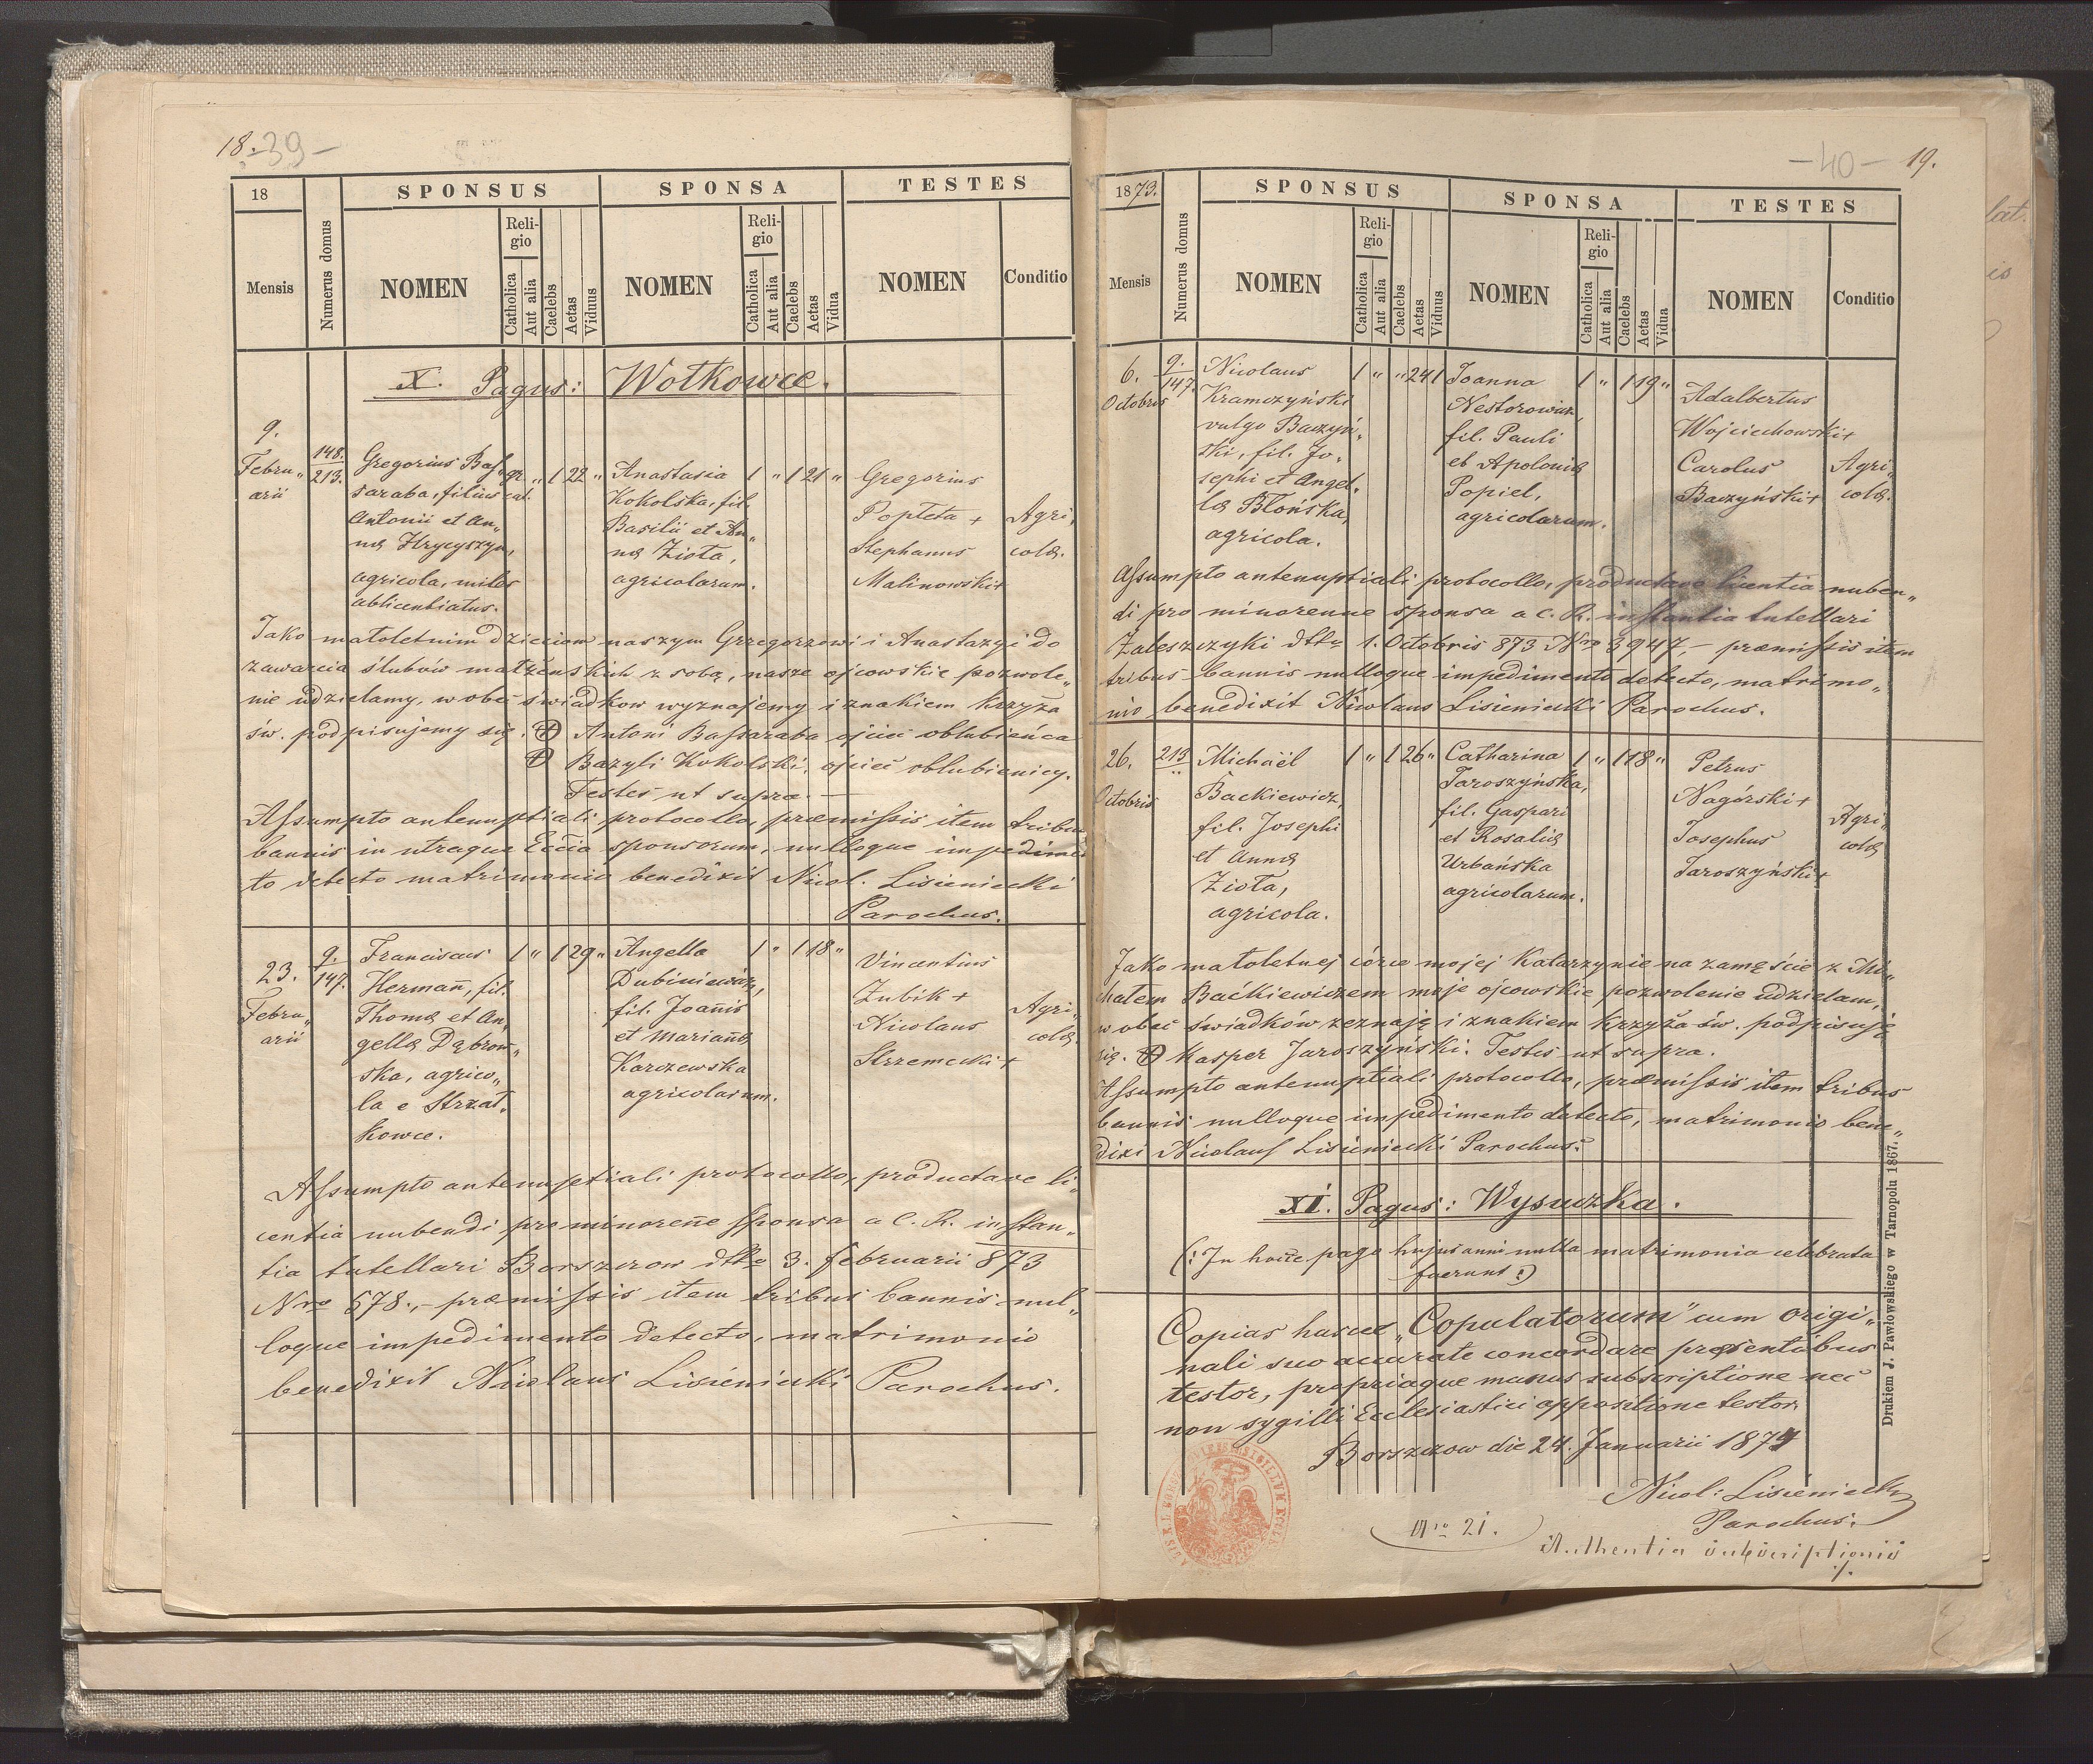 18. -39-
18
SPONSUS SPONSA TESTES
Mensis Numerus domus NOMEN Religio Catholica Aut alia Caelebs Aetas Viduus NOMEN Religio Catholica Aut alia Caelebs Aetas Vidua NOMEN Conditio
X. Pagus: Wołkowce.
9.
Febru„
arii
148.
213.
Gregorius Bas„
saraba, filius
Antonii et An„
na Hrycyszyn,
agricola, miles
ablicentiatus.
gr. „ 1 22 „
cat.
Anastasia
Kokolska, fil.
Basilii et An„
na Zioła,
agricolarum.
1 „ 1 21 „
Gregorius
Popteta +
Stephanus
Malinowski+
Agri„
colæ.
Jako małoletnim dzieciom naszym Grzegorzowi i Anastazyi do
zawarcia ślubów małżeńskich z sobą, nasze ojcowskie pozwole„
nie udzielamy, wobec świadkow wyznajemy i znakiem krzyża
św. podpisujemy się. + Antoni Bassaraba ojciec oblubieńca
+ Bazyli Kokolski, ojciec oblubienicy.
Testes ut supra. —
Assumpto antenuptiali protocollo, præmissis item tribus
bannis in utraque Eccia sponsorum, nulloque impedimen
to detecto matrimonio benedixit Nicol. Lisieniecki
Parochus.
23.
Febru„
arii
9.
147.
Franciscus
Hermañ, fil.
Thomæ et An„
gellæ Dąbrow„
ska, agrico„
la e Strzał„
kowce.
1 „ 1 29 „
Angella
Dubiniewicz,
fil. Joañis
et Mariañæ
Karczewska
agricolarum.
1 „ 1 18 „
Vincentius
Zubik +
Nicolaus
Strzemecki +
Agri„
colæ.
Assumpto antenuptiali protocollo, productave li„
centia nubendi pro minoreñe sponsa a C. R. instan„
tia tutellari Borszczow dtto 3. Februarii 873
Nro 578., – præmissis item tribus bannis nul„
loque impedimento detecto, matrimonio
benedixit Nicolaus Lisieniecki Parochus.
-40- 19.
1873.
SPONSUS SPONSA TESTES
Mensis Numerus domus NOMEN Religio Catholica Aut alia Caelebs Aetas Viduus NOMEN Religio Catholica Aut alia Caelebs Aetas Vidua NOMEN Conditio
6.
Octobris
9.
147.
Nicolaus
Kramczyński
vulgo Baczyń„
ski, fil. Jo„
sephi et Angel„
la Błońska,
agricola.
1 „ „ 24 1
Joanna
Nestorowicz,
fil. Pauli
et Apoloniæ
Popiel,
agricolarum.
1 „ 1 19 „
Adalbertus
Wojciechowski+
Carolus
Baczyński+
Agri„
colæ.
Assumpto antenuptiali protocollo, productave licentia nuben„
di pro minorenne sponsa a C. R. instantia tutellari
Zaleszczyki dtto 1. Octobris 873 Nro 3947, – præmissis item
tribus bannis nulloque impedimento detecto, matrimo„
nio benedixit Nicolaus Lisieniecki Parochus.
26.
Octobris
213
„
Michaël
Baćkiewicz,
fil. Josephi
et Annæ
Zioła,
agricola.
1 „ 1 26 „
Catharina
Jaroszyńska,
fil. Gaspari
et Rosaliæ
Urbańska
agricolarum.
1 „ 1 18 „
Petrus
Nagórski+
Josephus
Jaroszyński+
Agri„
colæ
Jako małoletnej córce mojej Katarzynie na zamęście z Mi„
chałem Baćkiewiczem moje ojcowskie pozwolenie udzielam,
wobec świadków zeznaję i znakiem krzyża św. podpisuję
się. + Kasper Jaroszyński. Testes ut supra.
Assumpto antenuptiali protocollo, præmissis item tribus
bannis nulloque impedimento detecto, matrimonio bene„
dixi Nicolaus Lisieniecki Parochus.
XI. Pagus: Wysuczka.
(: In hocce pago hujus anni nulla matrimonia celebrata
fuerunt :)
Copias hasce „Copulatorum" cum origi„
nali suo accurate concordare præsentibus
testor, propriaque manus subscriptione nec
non sygilli Ecclesiastici appositione testor.
Borszczow die 24. Januarii 1874
Nicol: Lisieniecki
Parochus.
Nro 21.
Authentia subscriptionis
./.
Drukiem J. Pawłowskiego w Tarnopolu 1867.
lat.
is